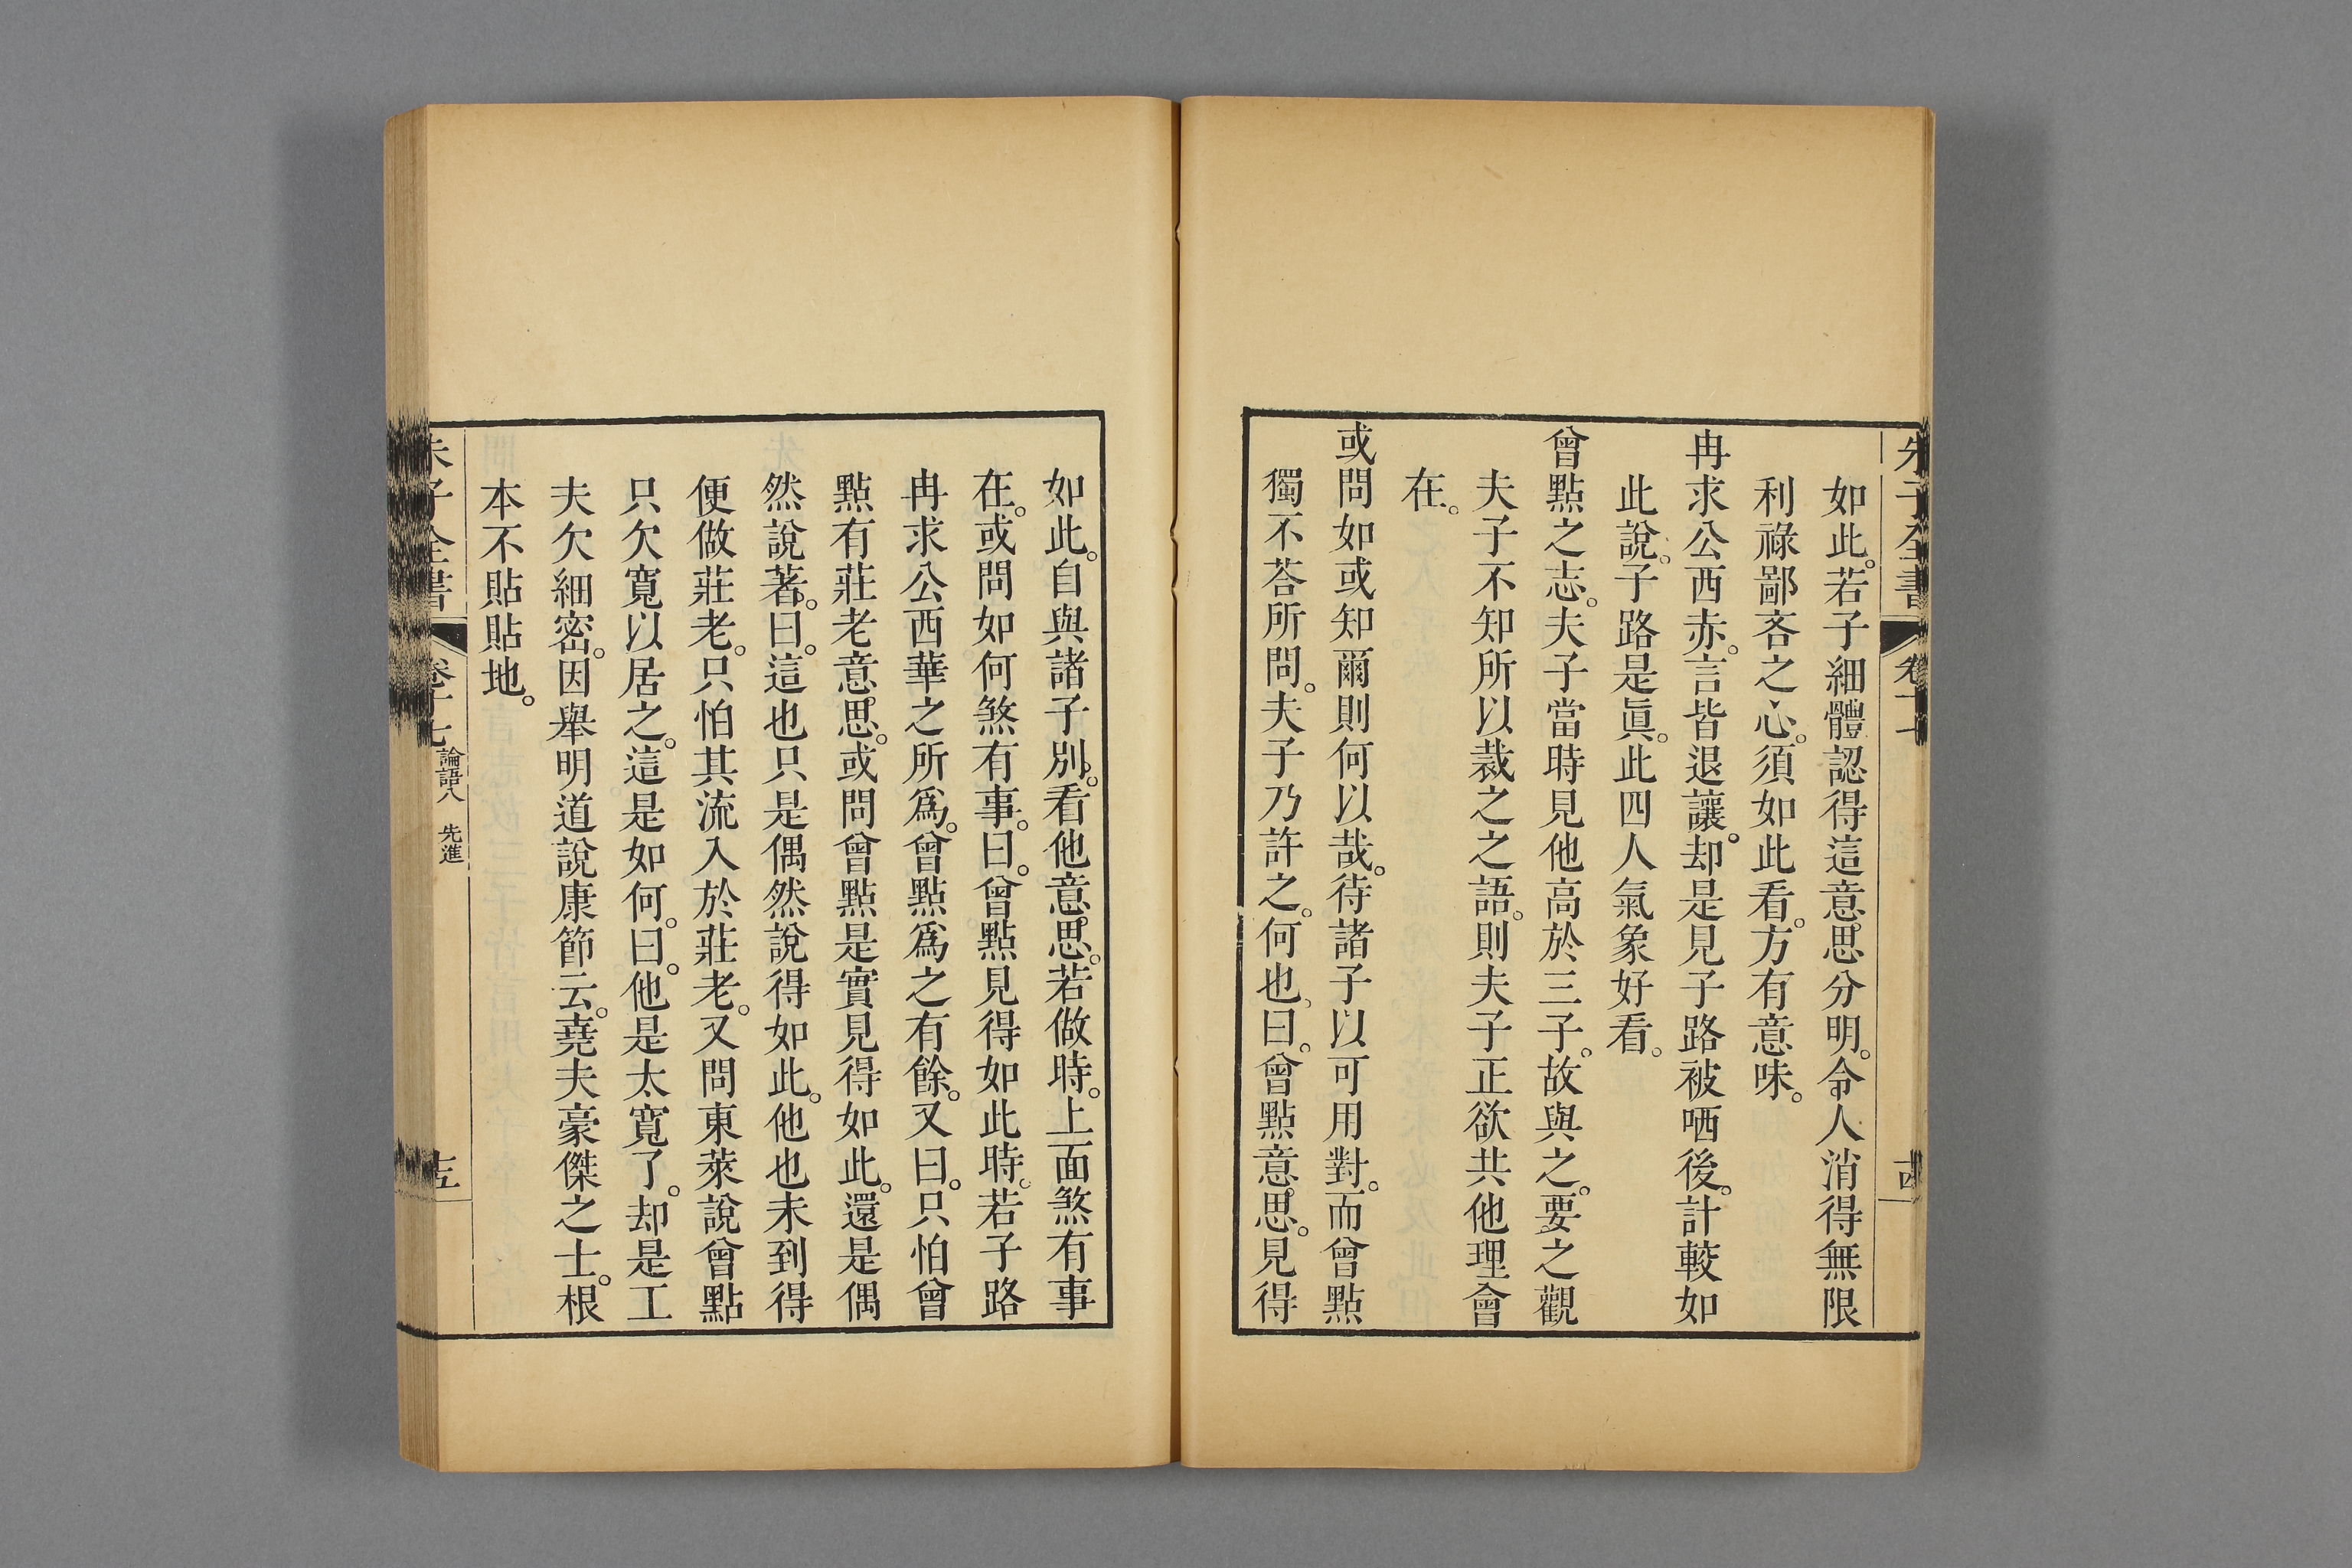 朱子全書 卷十七 十四
如此。若子細體認得這意思分明。令人消得無限
利祿鄙吝之心。須如此看。方有意味。
冉求公西赤。言皆退讓。却是見子路被哂後。計較如
此說。子路是眞。此四人氣象好看。
曾點之志。夫子當時見他高於三子。故與之。要之觀
夫子不知所以裁之之語。則夫子正欲共他理會
在。
或問如或知爾則何以哉。待諸子以可用對。而曾點
獨不荅所問。夫子乃許之。何也。曰。曾點意思。見得
如此。自與諸子別。看他意思。若做時。上面煞有事
在。或問如何煞有事。曰。曾點見得如此時。若子路
冉求公西華之所爲。曾點爲之有餘。又曰。只怕曾
點有莊老意思。或問曾點是實見得如此。還是偶
然說著。曰。這也只是偶然說得如此。他也未到得
便做莊老。只怕其流入於莊老。又問東萊說曾點
只欠寬以居之。這是如何。曰。他是太寬了。却是工
夫欠細密。因舉明道說康節云。堯夫豪傑之士。根
本不貼貼地。
朱子全書 卷十七 論語八 先進 十五